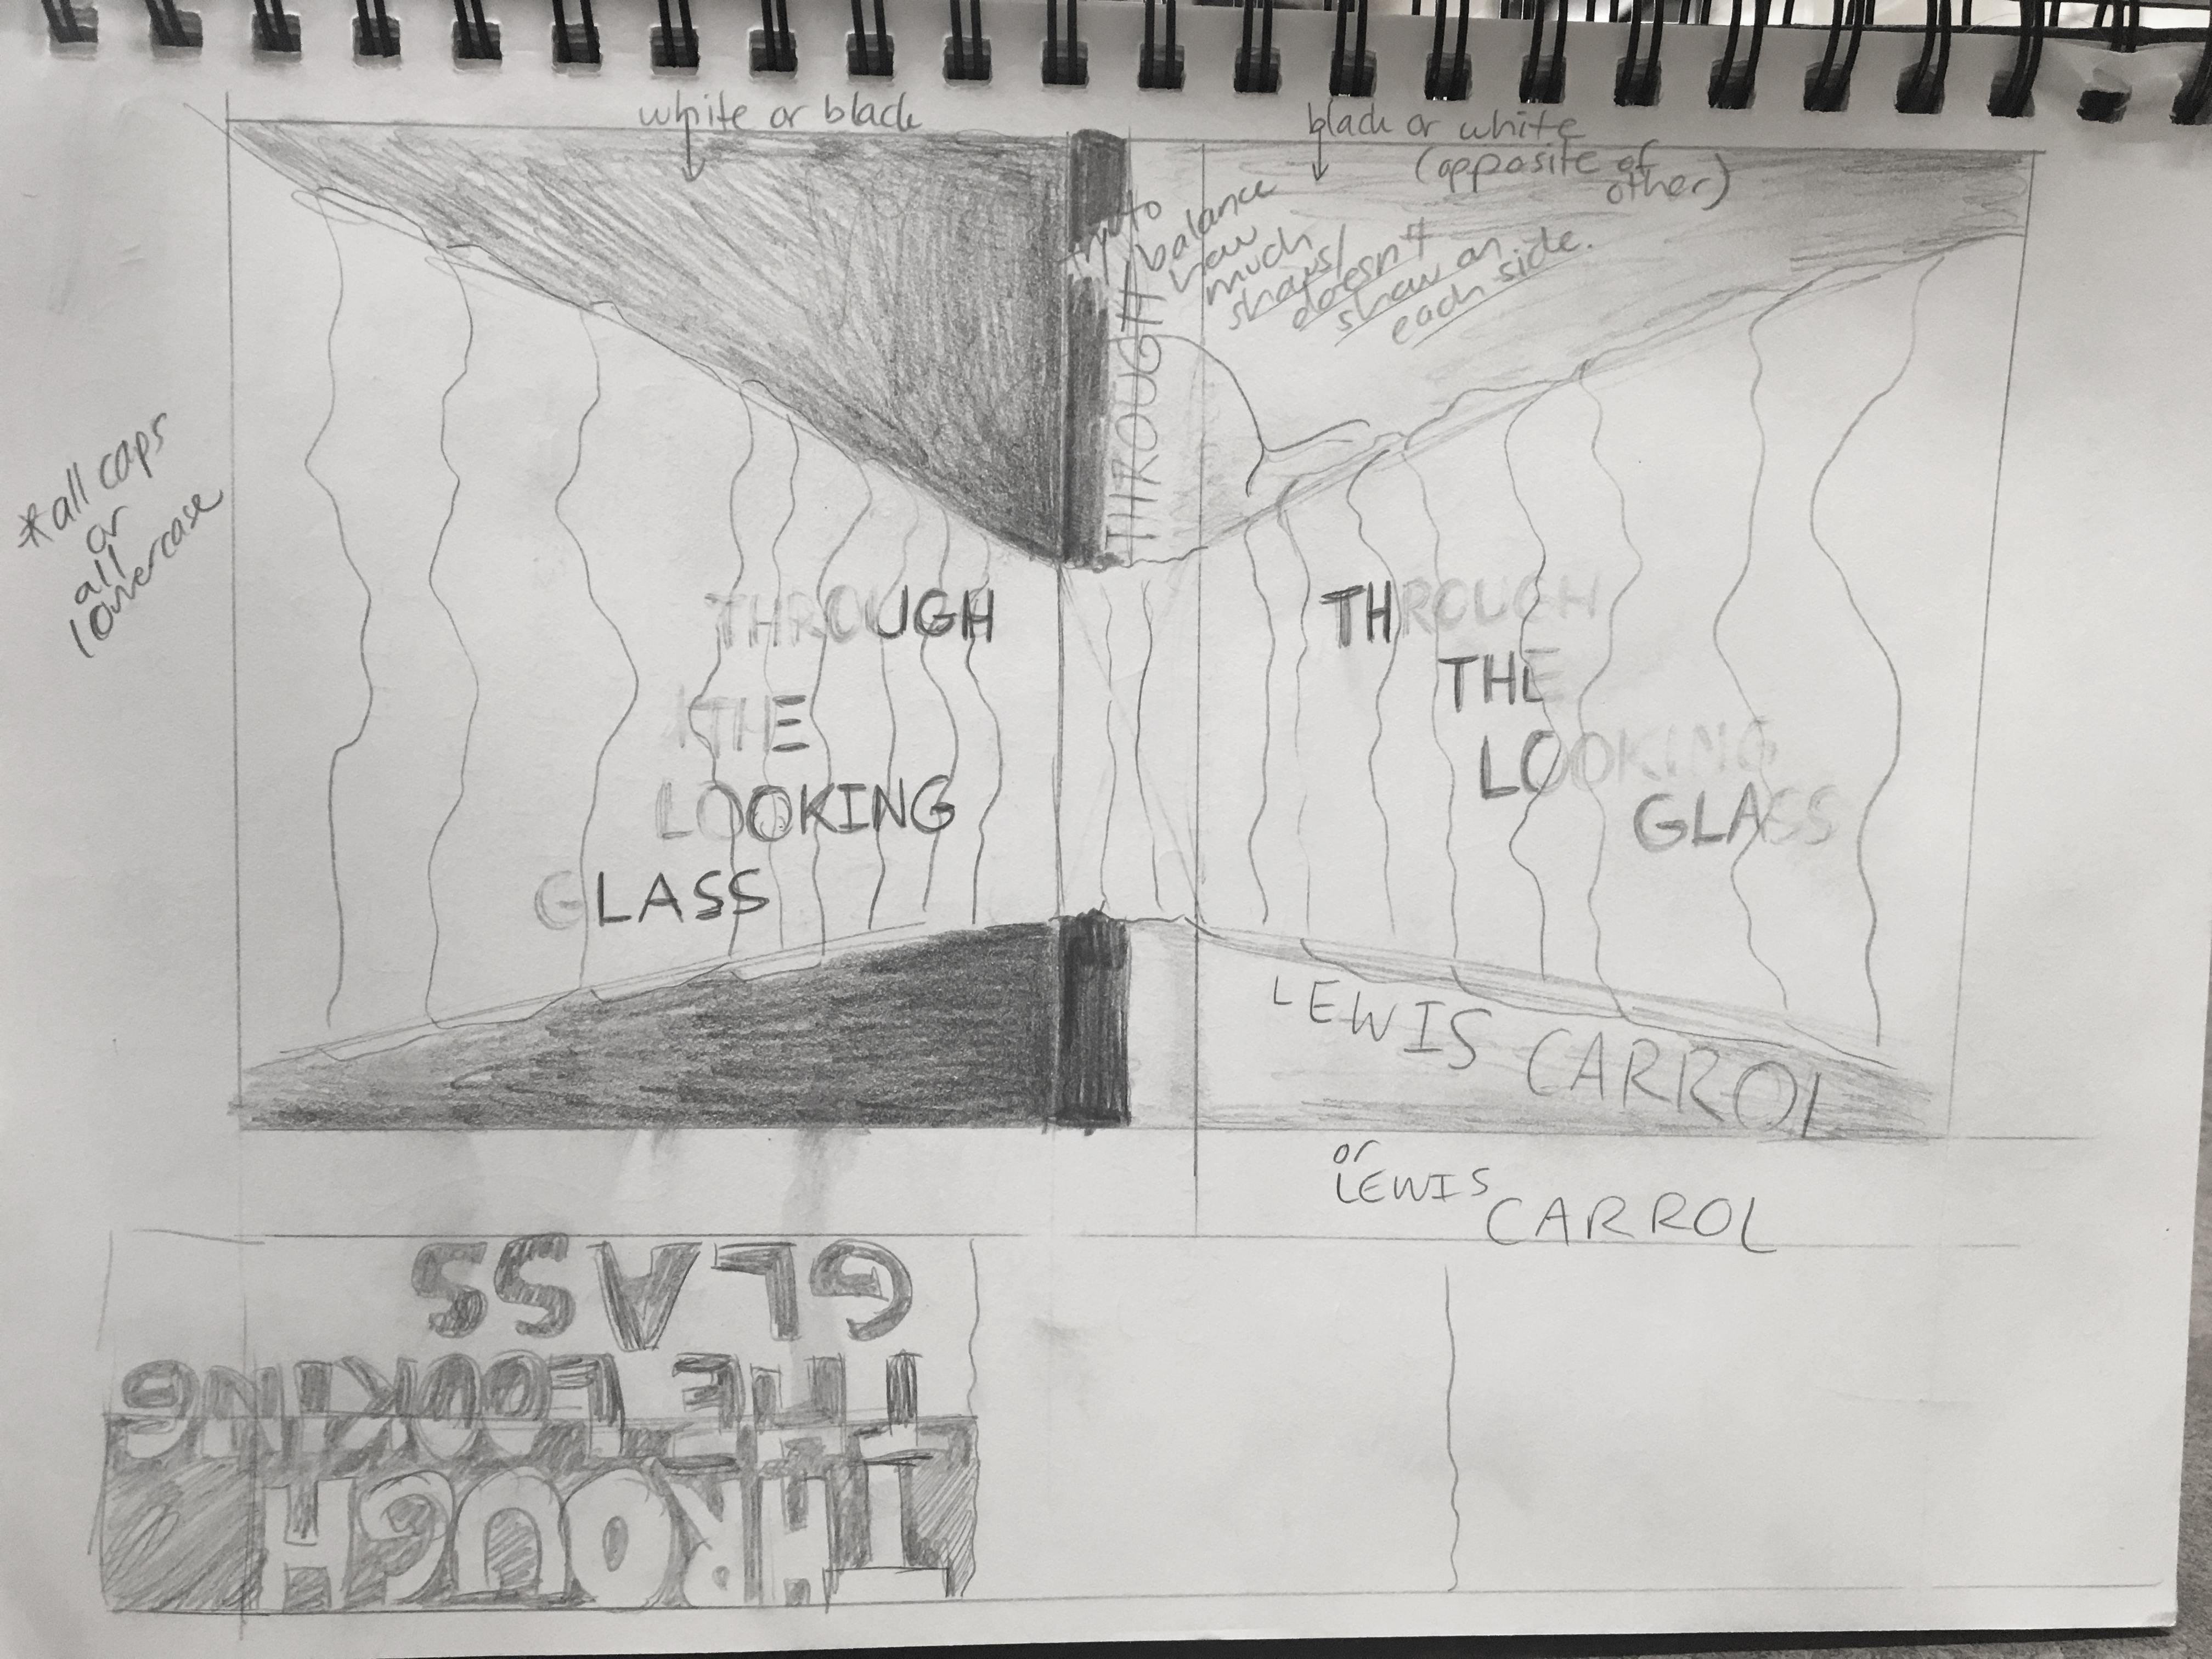 white or black
black or white
(opposite of
other)
try to
balance
how
much
shows/
doesn't
show on
each side.
THROUGH
*all caps
or
all
lowercase
THROUGH
THE
LOOKING
GLASS
THROUGH
THE
LOOKING
GLASS
LEWIS CARROL
or
LEWIS
CARROL
THROUGH
THE LOOKING
GLASS